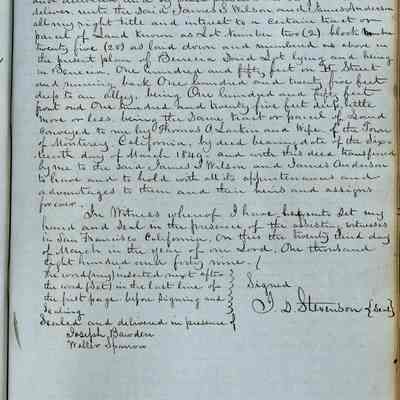 deliver unto the Said James S Wilson and James Anderson
all my right title and interest to a certain tract or
parcel of Land known as Lot Number two (2) block Number
twenty five (25) as laid down and numbered as above in
the present plan of Benecia Said Lot lying and being
in Benecia. One hundred and fifty feet on H. Street
and running back One hundred and twenty five feet
deep to an alley, being One hundred and fifty feet
front and One hundred and twenty five feet deep, little
more or less. being the Same tract or parcel of Land
conveyed to me by Thomas O Larkin and Wife of the Town
of Monterey California, by deed bearing date of the Six-
teenth day of March 1849. and with this deed transferred
by me to the Said James S Wilson and James Anderson
to have and to hold with all its appurtenances and
advantages to them and their heirs and assigns
forever.
In Witness whereof I have hereunto Set my
hand and Seal in the presence of the assisting witnesses
in San Francisco California, on this the twenty third day
of March in the year of our Lord, One thousand
eight hundred and forty nine. /
The word (my) inserted next after
the word (Set) in the last line of
the first page before Signing and
Sealing
Signed
J. D. Stevenson {Seal}
Sealed and delivered in presence of
Joseph Bawden
Walter Sparrow